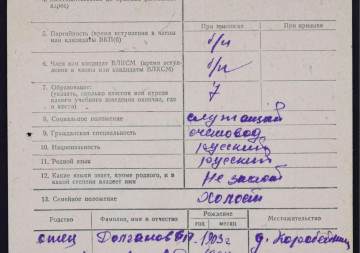 адрес)
При призыве
При призыве
5. Партийность (время вступления в члены
или кандидаты ВКП(б)
б/п
6. Член или кандидат ВЛКСМ (время вступ-
ления в члены или кандидаты ВЛКСМ)
б/п
7. Образование:
(указать, сколько классов или курсов
какого учебного заведения окончил, где
и когда)
7
8. Социальное положение
служащий
9. Гражданская специальность
счетовод
10. Национальность
русский
11. Родной язык
русский
12. Какие языки знает, кроме родного, и в
какой степени владеет ими
Не знает
13. Семейное положение
Холост
Родство
Фамилия, имя и отчество
Рождение
Местожительство
год
месяц
отец
Долганов
1903г